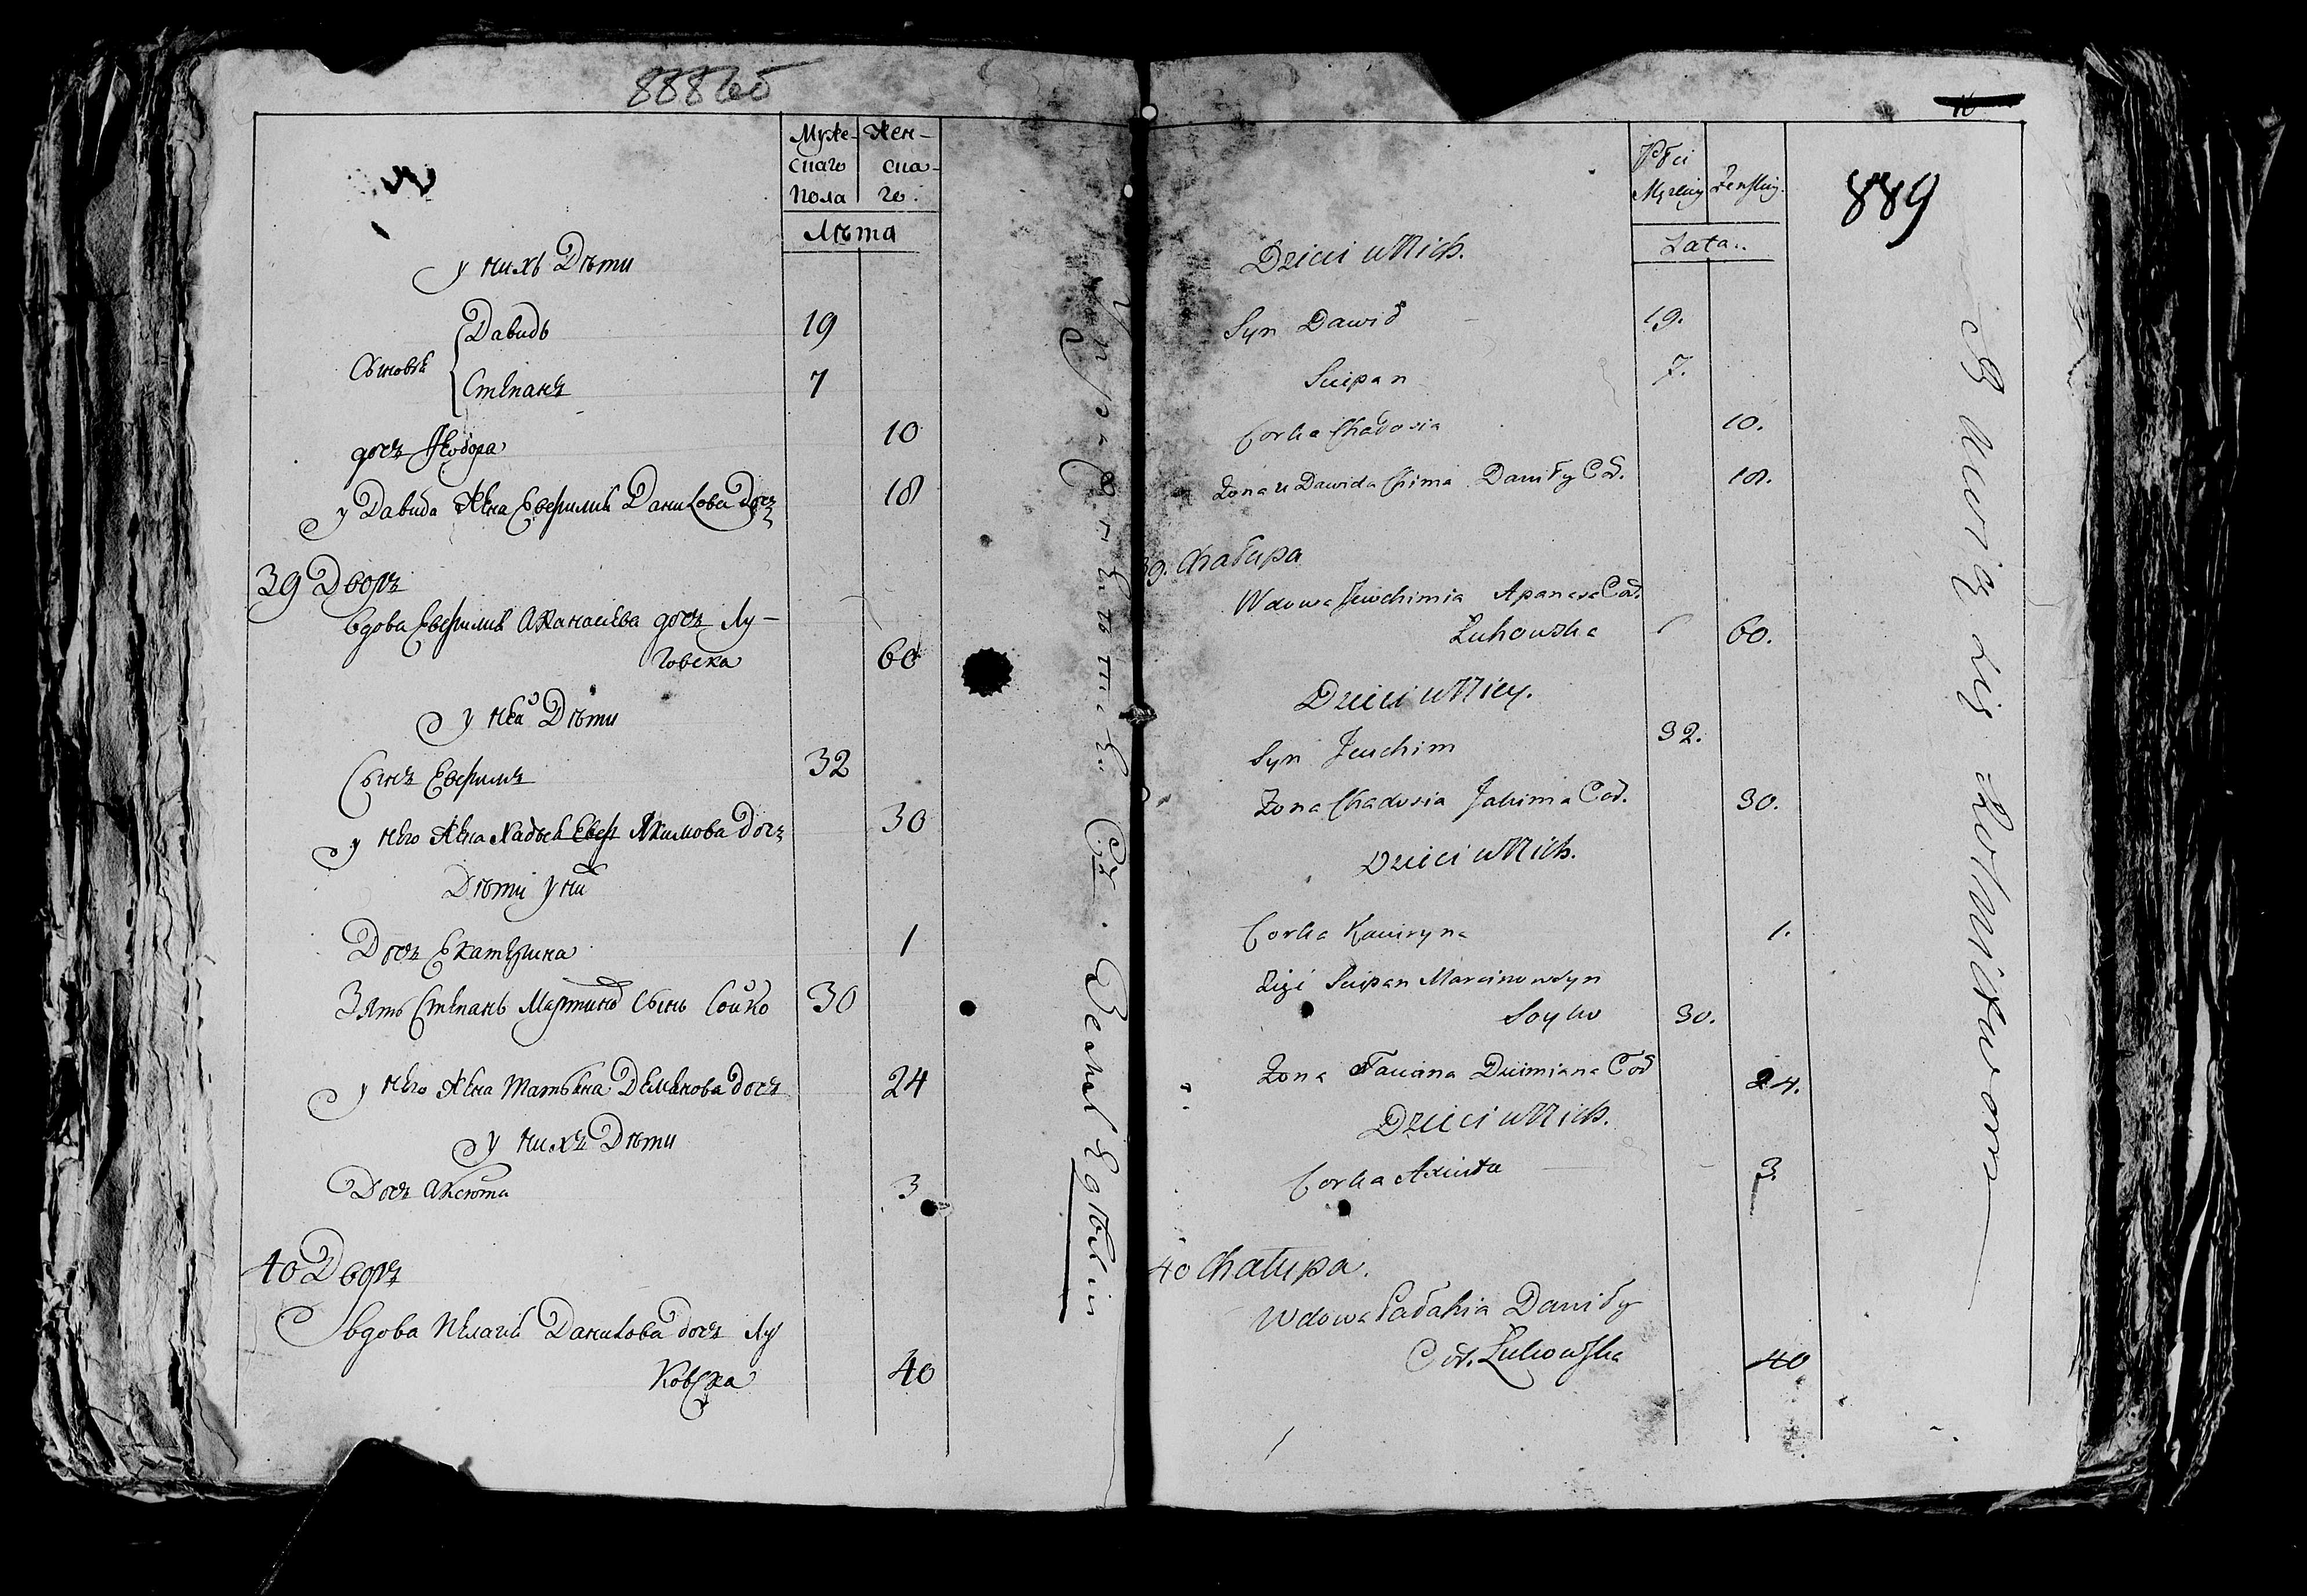 888 об
Муже- Жен-
скаго ска-
пола го.
Лѣта
у нихъ Дѣти
Сыновья
Давидъ 19
Степанъ 7
дочь Ѳеодора 10
у Давида Жена Евфимия Данилова Дочь 18
39 Дворъ
вдова Евфимия Афанасиева дочь Лу-
говска 60
у нея Дѣти
Сынъ Евфимъ 32
у него Жена Хадося Якимова дочь 30
Дѣти у ни
Дочь Екатерина 1
Зять Степанъ Мартиновъ Сынъ Сойко 30
у него Жена Татьяна Демянова дочь 24
у нихъ Дѣти
Дочь Аксюта 3
40 Дворъ
вдова Пелагия Данилова дочь Лу
ковска 40
889
Płci
Męzkiey Zenskiey
Lata..
Dzieci u Nich.
Syn Dawid 19.
Sciepan 7.
Corka Chadosia 10.
Zona u Dawida Chima Daniły Cod. 18.
39. Chałupa
Wdowa Jewchimia Apanasa Cod.
Łuhowska 60.
Dzieci u Niey.
Syn Jeuchim 32.
Zona Chadosia Jakima Cod. 30.
Dzieci u Nich.
Corka Kaciryna 1.
Zięć Sciepan Marcinow Syn
Soyko 30.
Zona Taciana Dziemiana Cod 24.
Dzieci u Nich.
Corka Axiuta 3.
40 Chałupa.
Wdowa Pałahia Daniły
Cod. Łukowska 40